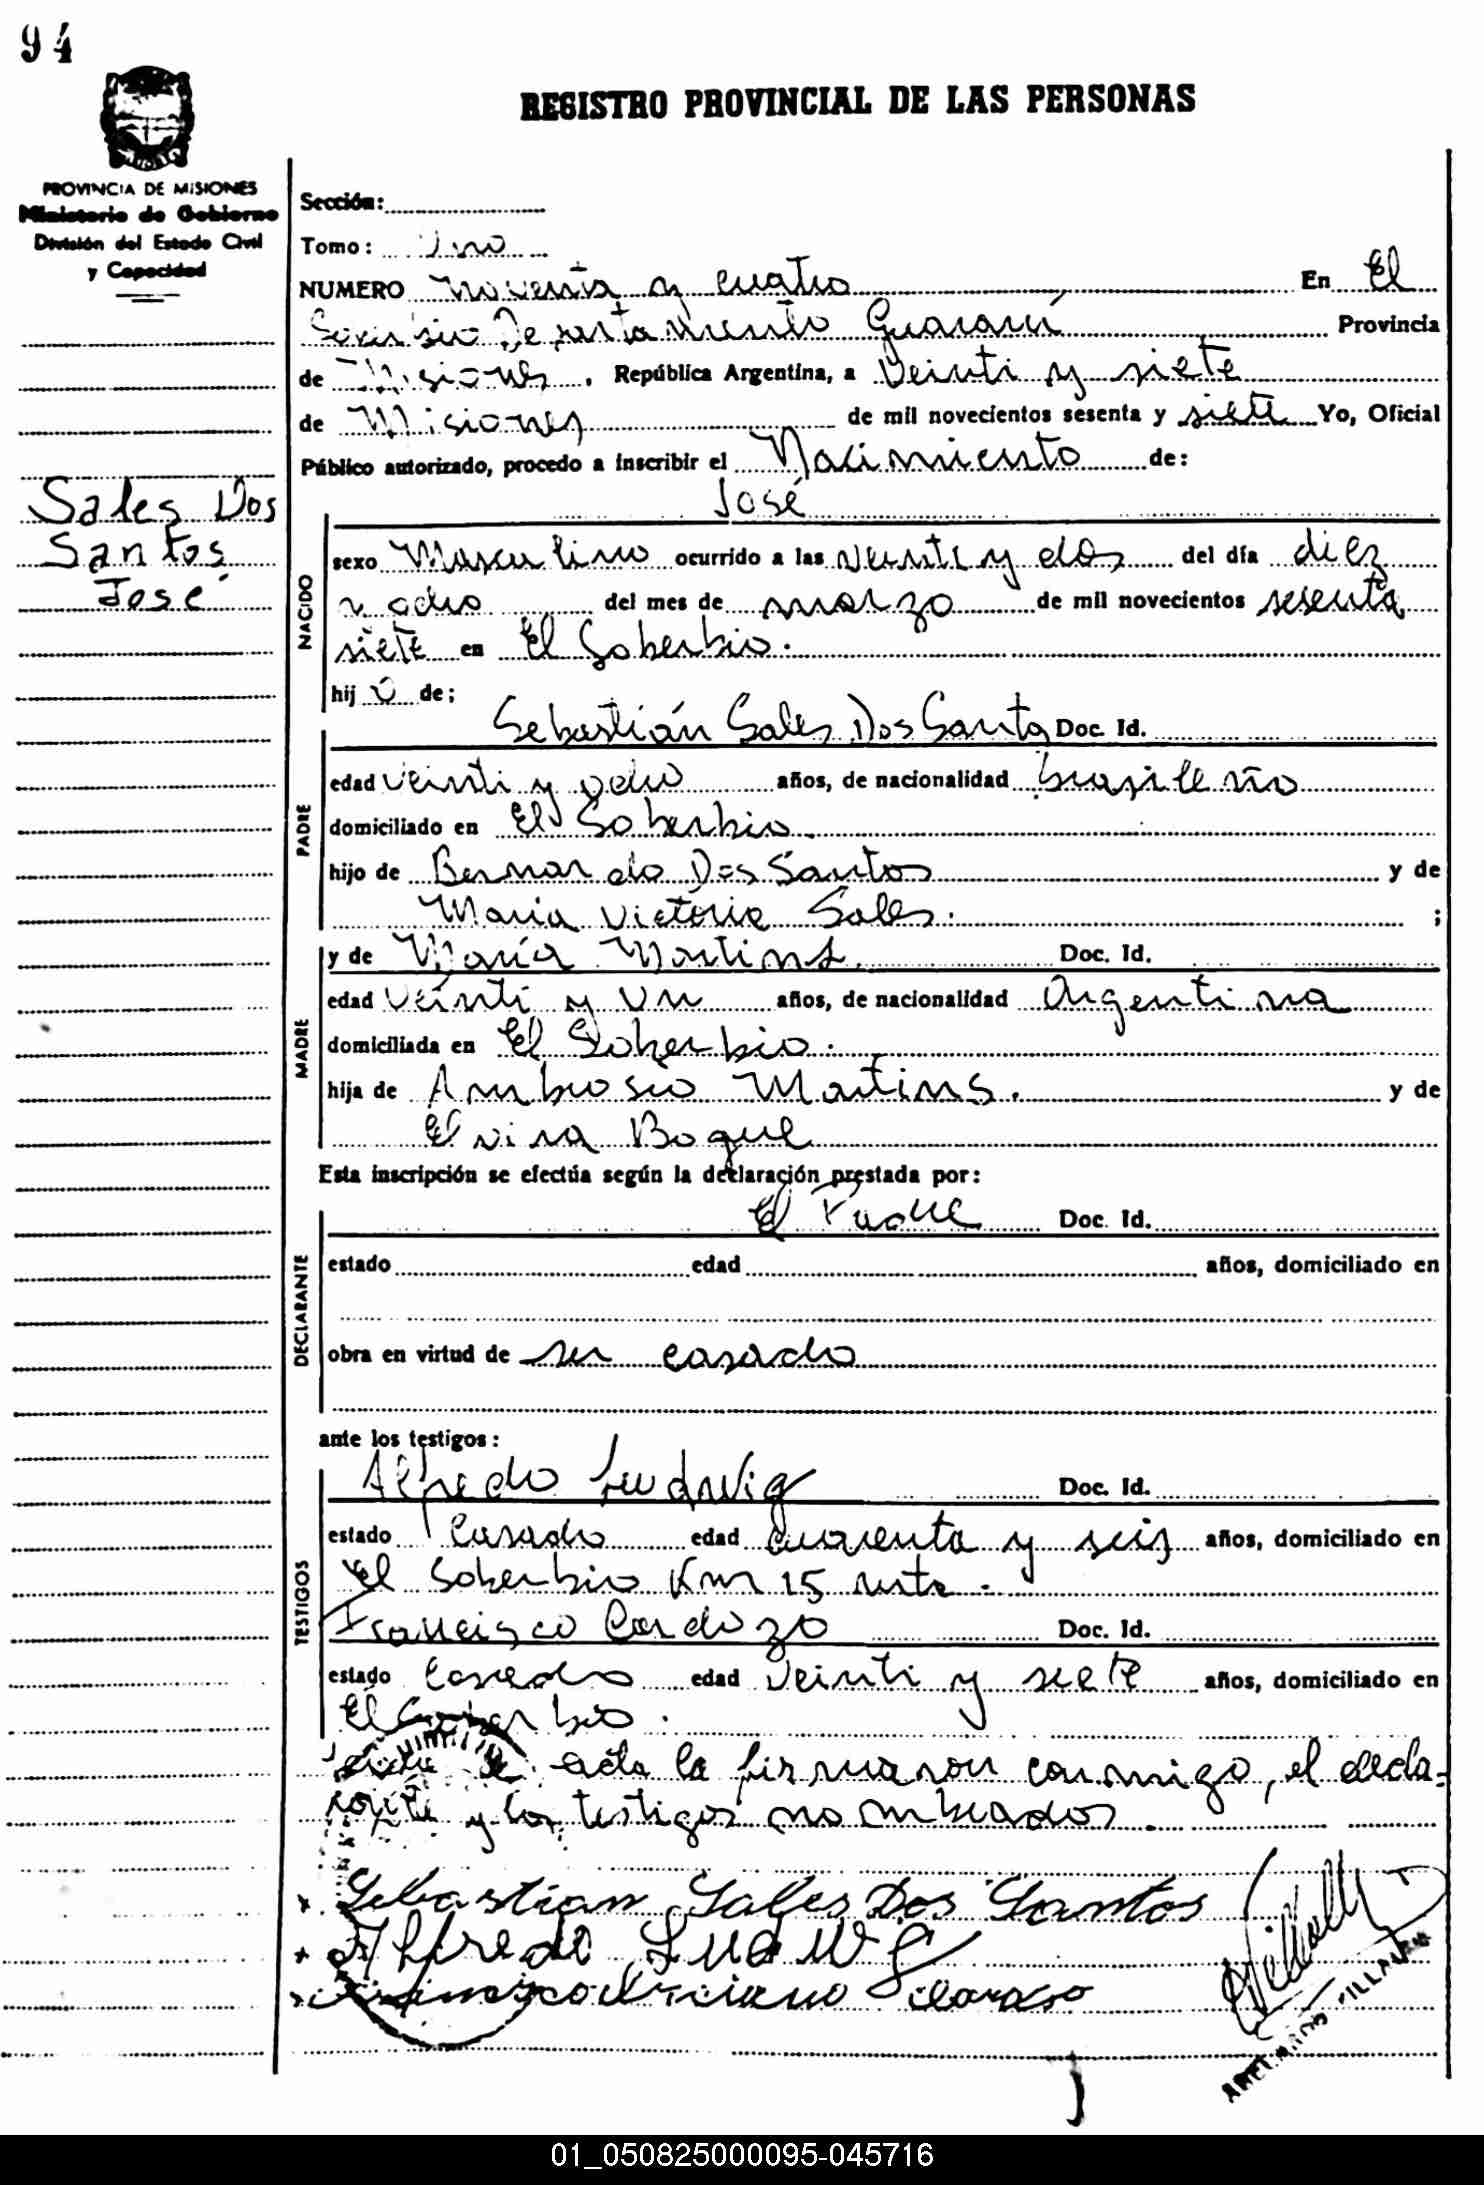 94
REGISTRO PROVINCIAL DE LAS PERSONAS
PROVINCIA DE MISIONES
Ministerio de Gobierno
División del Estado Civil
y Capacidad
Sales Dos
Santos
José
Sección:
Tomo: Uno
NUMERO Noventa y cuatro En El
Soberbio Departamento Guaraní Provincia
de Misiones, República Argentina, a Veinti y siete
de Misiones de mil novecientos sesenta y siete Yo, Oficial
Público autorizado, procedo a inscribir el Nacimiento de:
José
NACIDO
sexo Masculino ocurrido a las veinti y dos del día diez
y ocho del mes de marzo de mil novecientos sesenta
siete en El Soberbio.
hij o de;
Sebastián Sales Dos Santos Doc. Id.
PADRE
edad veinti y ocho años, de nacionalidad brasileño
domiciliado en El Soberbio.
hijo de Bernardo Dos Santos y de
Maria Victoria Sales. ;
y de María Martins. Doc. Id.
MADRE
edad veinti y un años, de nacionalidad Argentina
domiciliada en El Soberbio.
hija de Ambrosio Martins. y de
Elvira Boque
Esta inscripción se efectúa según la declaración prestada por:
El Padre Doc. Id.
DECLARANTE
estado edad años, domiciliado en
obra en virtud de ser casado
ante los testigos:
Alfredo Ludwig Doc. Id.
TESTIGOS
estado Casado edad cuarenta y seis años, domiciliado en
El Soberbio Km 15 ruta.
Francisco Cardozo Doc. Id.
estado Casado edad veinti y siete años, domiciliado en
El Soberbio.
acta la firmaron conmigo, el decla-
rante y los testigos nombrados.
Sebastian Sales Dos Santos
Alfredo Ludwig
01_050825000095-045716